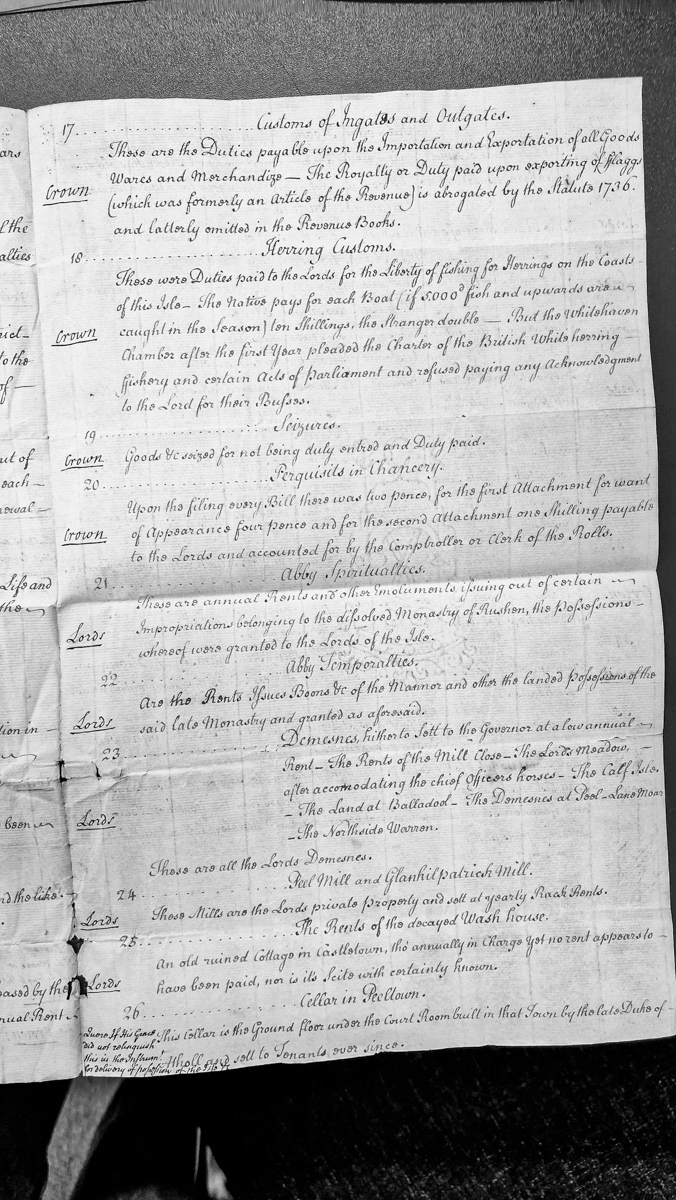 ars
17 ........................ Customs of Ingates and Outgates.
These are the Duties payable upon the Importation and Exportation of all Goods
Crown
Wares and Merchandize — The Royalty or Duty paid upon exporting of fflaggs
(which was formerly an Article of the Revenue) is abrogated by the Statute 1736.
and latterly omitted in the Revenue Books.
l the
alties
18 ........................ Herring Customs.
These were Duties paid to the Lords for the Liberty of fishing for Herrings on the Coasts
of this Isle — The Native pays for each Boat (if 5000 fish and upwards are
Crown
caught in the Season) ten Shillings, the Stranger double — But the Whitehaven
Chamber after the first Year pleaded the Charter of the British White herring —
ffishery and certain Acts of Parliament and refused paying any Acknowledgment
to the Lord for their Busses.
rict —
to the
of —
19 ........................ Seizures.
Crown
Goods &c seized for not being duly entred and Duty paid.
20 ........................ Perquisits in Chancery.
Upon the filing every Bill there was two pence, for the first Attachment for want
Crown
of Appearance four pence and for the second Attachment one Shilling payable
to the Lords and accounted for by the Comptroller or Clerk of the Rolls.
out of
each —
newal —
21 ........................ Abby Spiritualties.
These are annual Rents and other Emoluments issuing out of certain
Lords
Impropriations belonging to the dissolved Monastry of Rushen, the Possessions —
whereof were granted to the Lords of the Isle.
Life and
the
22 ........................ Abby Temporalties.
Are the Rents Issues Boons &c of the Mannor and other the landed Possessions of the
Lords
said late Monastry and granted as aforesaid.
23 ........................ Demesnes, hitherto sett to the Governor at a low annual
Rent — The Rents of the Mill Close — The Lords Meadow, —
after accomodating the chief Officers horses — The Calf Isle.
Lords
— The Land at Balladool — The Demesnes at Peel — Lane Moar
— The Northside Warren.
tion in —
been
These are all the Lords Demesnes.
24 ........................ Peel Mill and Glankilpatrick Mill.
Lords
These Mills are the Lords private Property and sett at yearly Rack Rents.
nd the like.
25 ........................ The Rents of the decayed Wash house.
Lords
An old ruined Cottage in Castletown, tho' annually in Charge yet no rent appears to —
have been paid, nor is it's Scite with certainty known.
eased by the
nual Rent
26 ........................ Cellar in Peeltown.
Quere If His Grace
did not relinquish
this in the Instrum!
for delivery of possession of the
This Cellar is the Ground floor under the Court Room built in that Town by the late Duke of —
Atholl and sett to Tenants ever since.